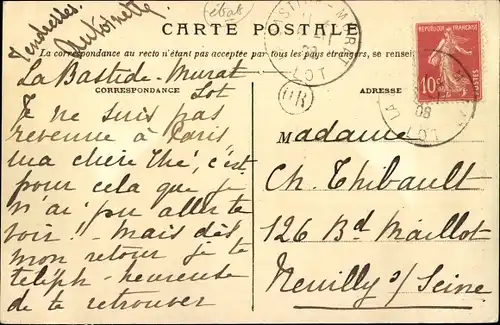 Tendresses.
Antoinette
CARTE POSTALE
La correspondance au recto n'étant pas acceptée par tous les pays étrangers, se rensei
La Bastide-Murat
Lot
CORRESPONDANCE
Je ne suis pas
revenue à Paris
ma chère Thé, c'est
pour cela que je
n'ai pu aller te
voir!! - Mais dès
mon retour je te
téléph - heureuse
de te retrouver
LOT
OR
REPUBLIQUE FRANÇAISE
POSTES
10c
08
LOT
LA
ADRESSE
Madame
Ch. Thibault
126 Bd Maillot
Neuilly s/ Seine